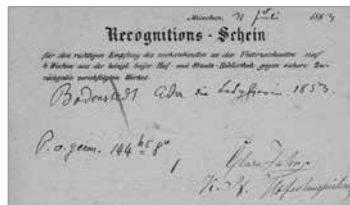 München, 31 Juli 1883
Recognitions - Schein
für den richtigen Empfang des nachstehenden an den Unterzeichneten auf
4 Wochen aus der königl. bayer. Hof- und Staats-Bibliothek gegen sichere Zu-
rückgabe verabfolgten Werkes.
Bodenstedt Ada die Lesghierin. 1853.
P. o. germ. 144 8°
K. K. Hofschauspielerin